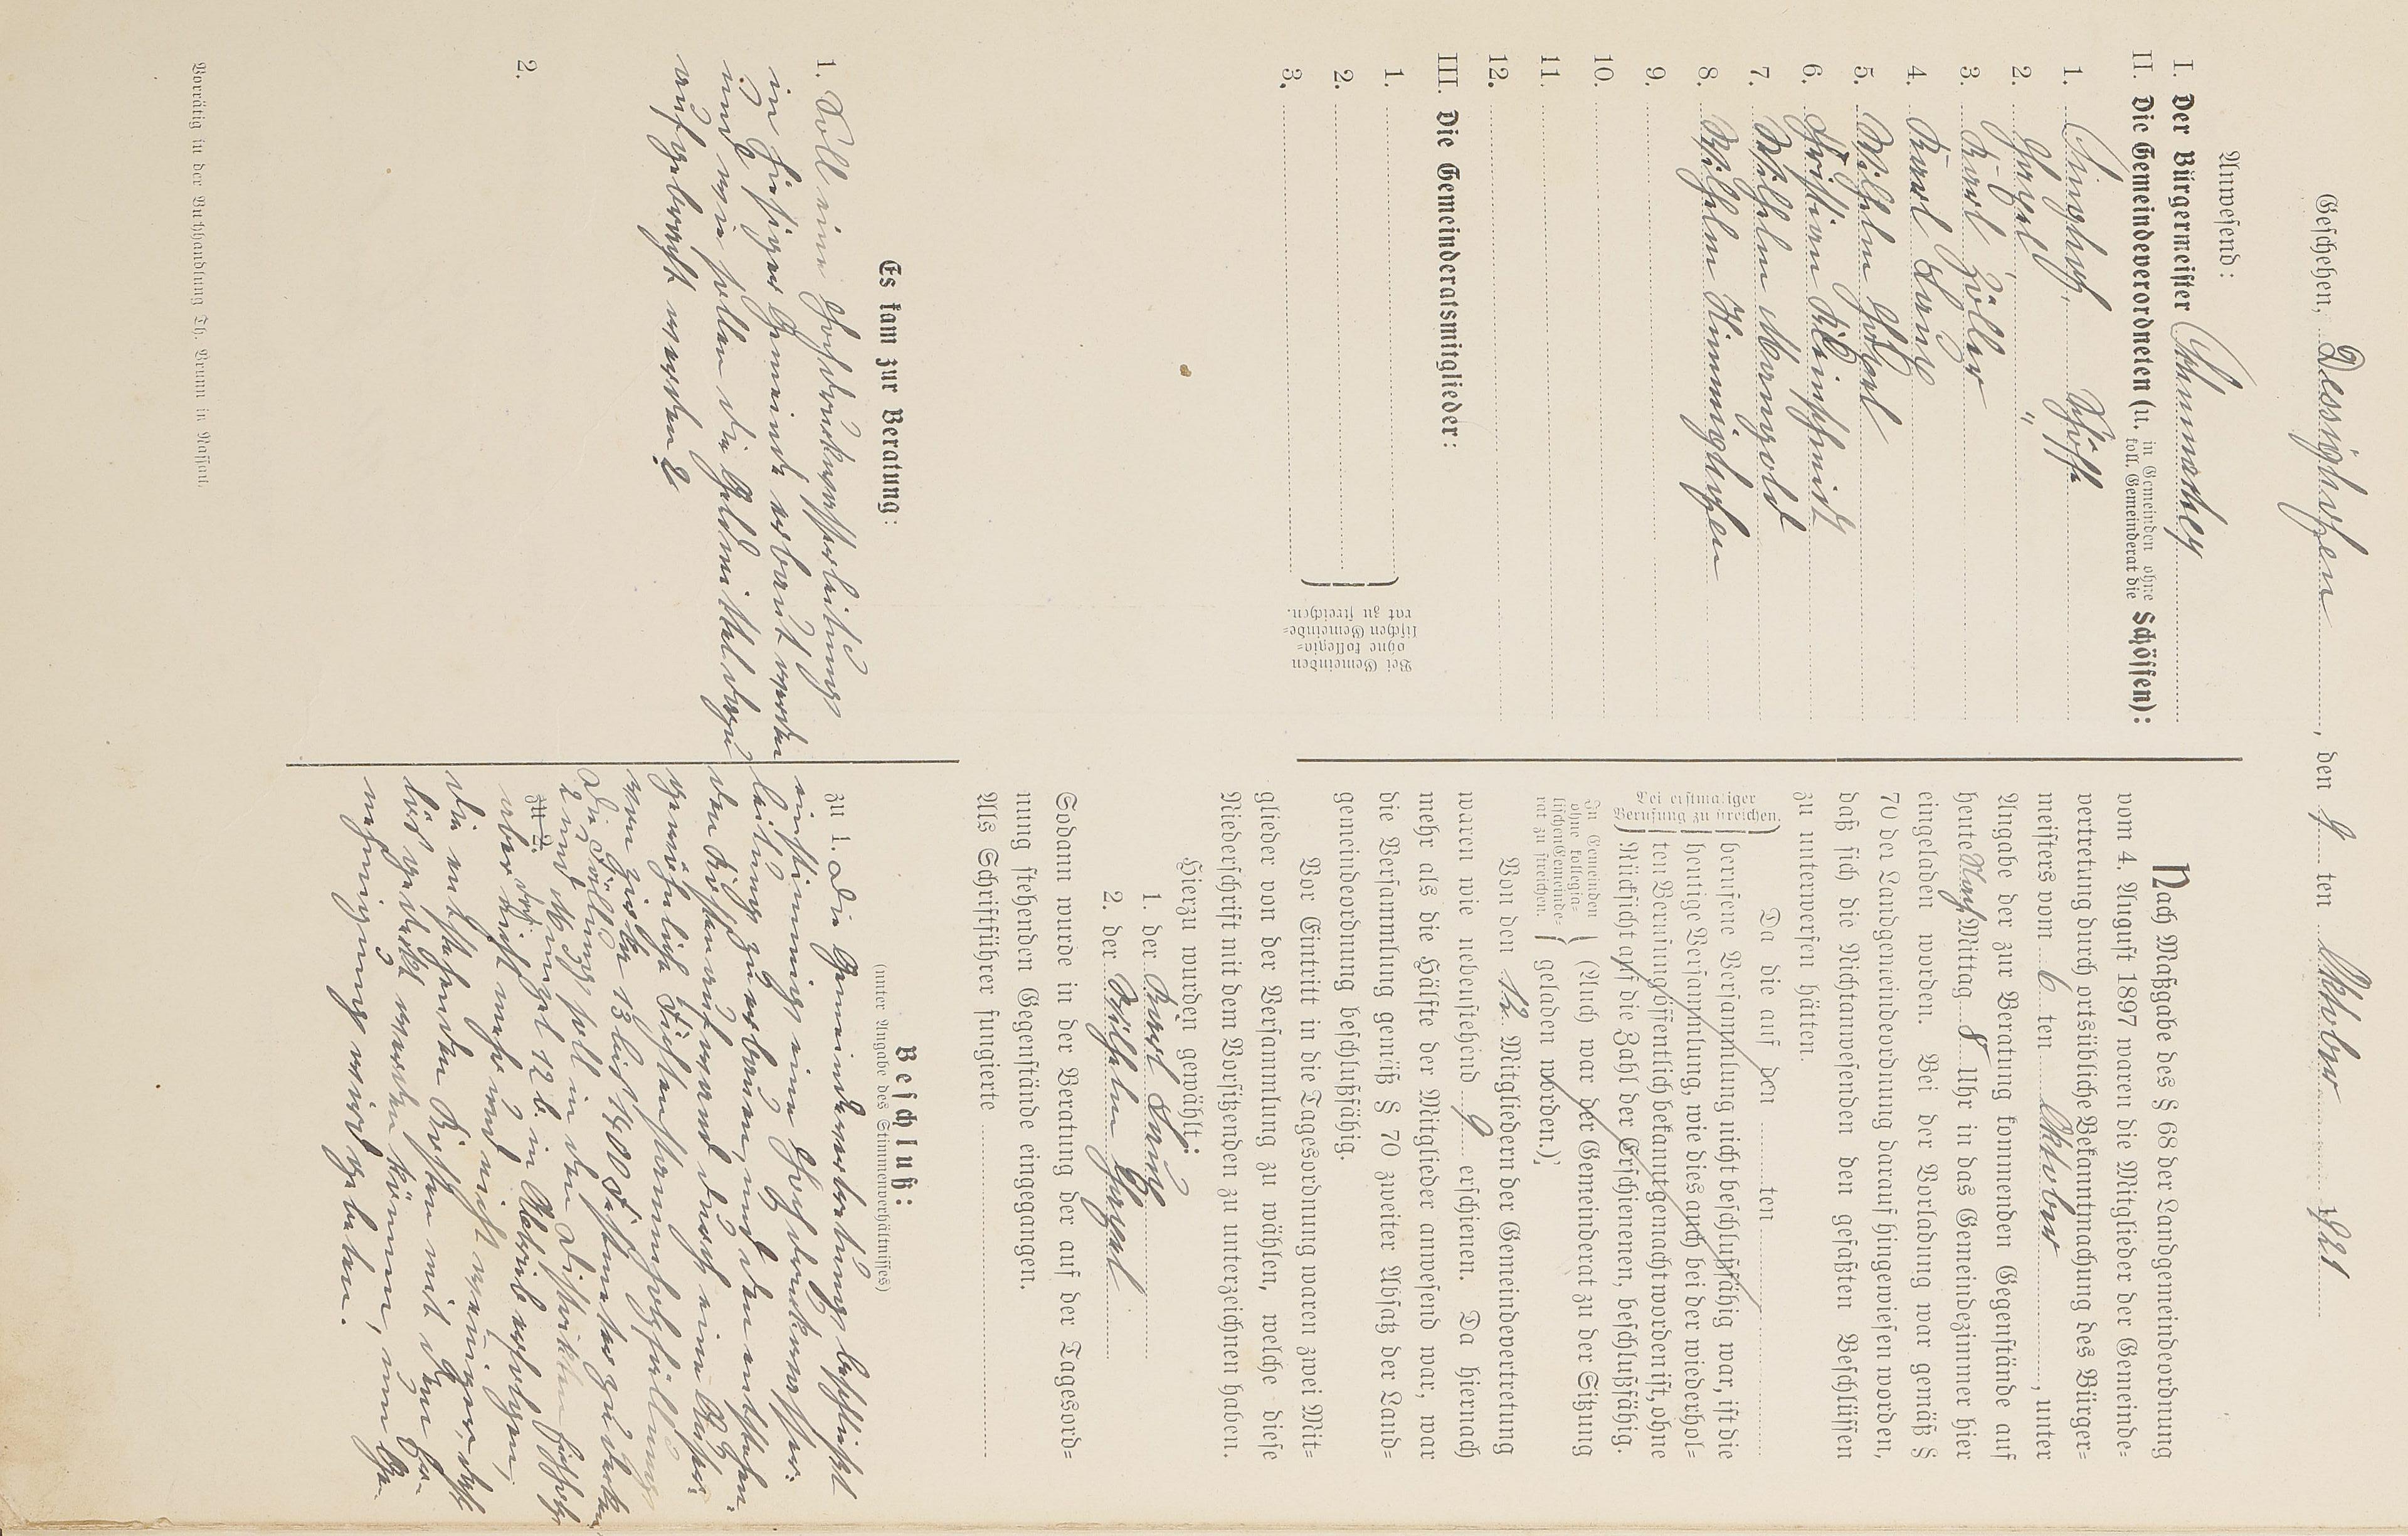 Geschehen, Dessighofen, den 9 ten Oktober 1921
Anwesend:
I. Der Bürgermeister
II. Die Gemeindeverordneten (u. in Gemeinden ohne koll. Gemeinderat die Schöffen):
1. Singhof, Schöffe
2. Gozel "
3. Karl Zöller
4. Karl Lauk
5. Wilhelm
6. Kristian Kleinschmidt
7. Wilhelm Mangold
8. Wilhelm Himmighofen
9.
10.
11.
12.
III. Die Gemeinderatsmitglieder:
1.
2.
3.
Bei Gemeinden
ohne kollegia-
lischen Gemeinde-
rat zu streichen.
Nach Maßgabe des § 68 der Landgemeindeordnung
vom 4. August 1897 waren die Mitglieder der Gemeinde-
vertretung durch ortsübliche Bekanntmachung des Bürger-
meisters vom 6 ten Oktober, unter
Angabe der zur Beratung kommenden Gegenstände auf
heute Nach Mittag 8 Uhr in das Gemeindezimmer hier
eingeladen worden. Bei der Vorladung war gemäß §
70 der Landgemeindeordnung darauf hingewiesen worden,
daß sich die Nichtanwesenden den gefaßten Beschlüssen
zu unterwerfen hätten.
Da die auf den ten
Bei erstmaliger
Berufung zu streichen.
berufene Versammlung nicht beschlußfähig war, ist die
heutige Versammlung, wie dies auch bei der wiederhol-
ten Berufung öffentlich bekannt gemacht worden ist, ohne
Rücksicht auf die Zahl der Erschienenen, beschlußfähig.
In Gemeinden
ohne kollegia-
lischen Gemeinde-
rat zu streichen.
(Auch war der Gemeinderat zu der Sitzung
geladen worden.)
Von den 12 Mitgliedern der Gemeindevertretung
waren wie nebenstehend 9 erschienen. Da hiernach
mehr als die Hälfte der Mitglieder anwesend war, war
die Versammlung gemäß § 70 zweiter Absatz der Land-
gemeindeordnung beschlußfähig.
Vor Eintritt in die Tagesordnung waren zwei Mit-
glieder von der Versammlung zu wählen, welche diese
Niederschrift mit dem Vorsitzenden zu unterzeichnen haben.
Hierzu wurden gewählt:
1. der Karl Lauk
2. der Wilhelm
Sodann wurde in der Beratung der auf der Tagesord-
nung stehenden Gegenstände eingegangen.
Als Schriftführer fungierte
Es kam zur Beratung:
1. Soll eine Hochdruckwasserleitung
in hiesiger Gemeinde erbaut werden
und wie sollen die Geldmittel dazu
aufgebracht werden?
2.
Beschluß:
(unter Angabe des Stimmenverhältnisses)
zu 1. Die Gemeindevertretung beschließt
einstimmig eine Hochdruckwasser-
leitung zu erbauen, und den entstehen-
den Kostenaufwand durch eine Außer-
gewöhnliche Fichtenstammholzfällung
von zirka 13 bis 1400 Festmeter zu decken.
Die Fällung soll in den Distrikten
2 und 12 b in erfolgen,
zu 2.
aber nicht mehr und nicht weniger, daß
die entstehenden Kosten mit dem
lös gedeckt werden können, um Ge-
nehmigung wird gebeten.
Vorrätig in der Buchhandlung Th. Brunn in Nassau.